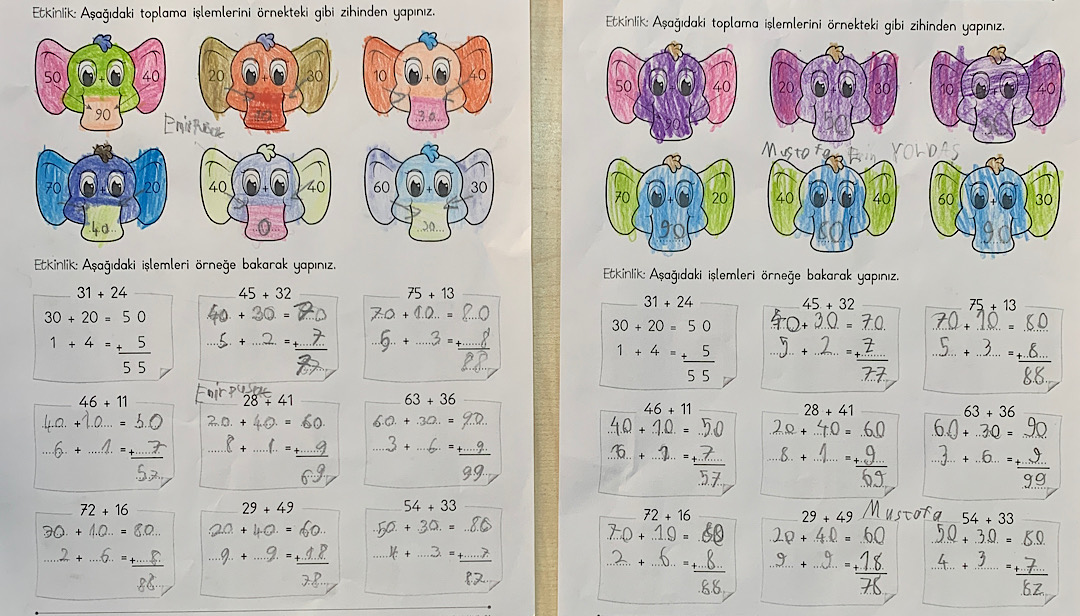 Etkinlik: Aşağıdaki toplama işlemlerini örnekteki gibi zihinden yapınız.
50 + 40 20 + 30 10 + 40
90 30
70 + 20 40 + 40 60 + 30
40 0 30
Etkinlik: Aşağıdaki işlemleri örneğe bakarak yapınız.
31 + 24 45 + 32 75 + 13
30 + 20 = 50 40 + 30 = 70 70 + 10 = 80
1 + 4 = + 5 5 + 2 = + 7 + 3 = + 8
55 77 88
46 + 11 28 + 41 63 + 36
40 + 10 = 50 20 + 40 = 60 60 + 30 = 90
6 + 1 = + 7 8 + 1 = + 9 3 + 6 = + 9
57 69 99
72 + 16 29 + 49 54 + 33
70 + 10 = 80 20 + 40 = 60 50 + 30 = 80
2 + 6 = + 8 9 + 9 = + 18 4 + 3 = + 7
88 78 87
Etkinlik: Aşağıdaki toplama işlemlerini örnekteki gibi zihinden yapınız.
50 + 40 20 + 30 10 + 40
90 50 50
Mustafa YOLDAŞ
70 + 20 40 + 40 60 + 30
90 80 90
Etkinlik: Aşağıdaki işlemleri örneğe bakarak yapınız.
31 + 24 45 + 32 75 + 13
30 + 20 = 50 40 + 30 = 70 70 + 10 = 80
1 + 4 = + 5 5 + 2 = + 7 5 + 3 = + 8
55 77 88
46 + 11 28 + 41 63 + 36
40 + 10 = 50 20 + 40 = 60 60 + 30 = 90
6 + 1 = + 7 8 + 1 = + 9 3 + 6 = + 9
57 69 99
72 + 16 29 + 49 Mustafa 54 + 33
70 + 10 = 80 20 + 40 = 60 50 + 30 = 80
2 + 6 = + 8 9 + 9 = + 18 4 + 3 = + 7
88 78 87